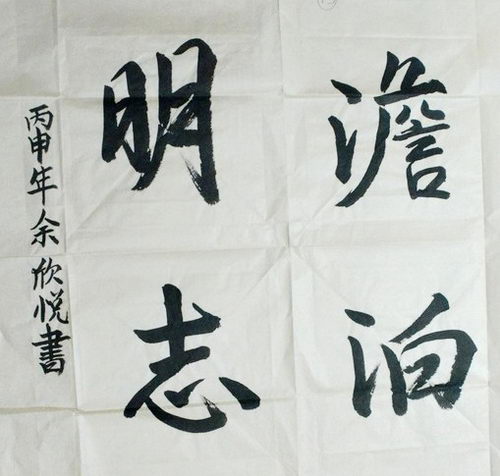 澹泊
明志
丙申年余欣悦書